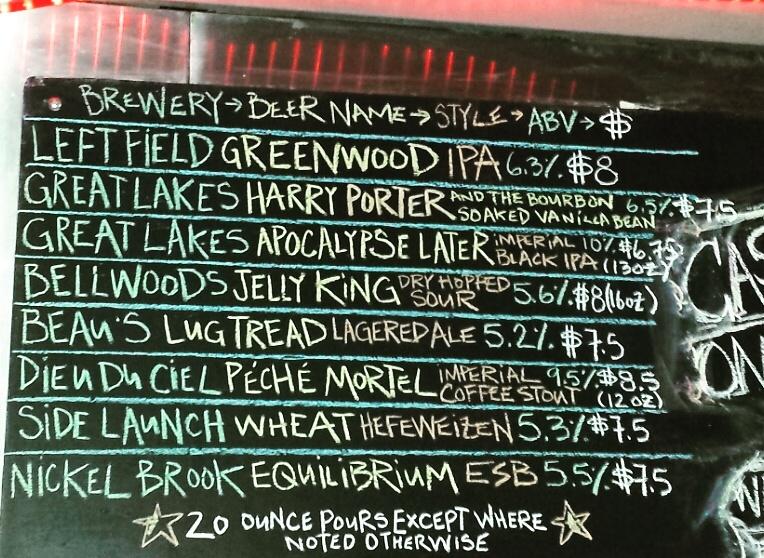 BREWERY → BEER NAME → STYLE → ABV → $
LEFT FIELD GREENWOOD IPA 6.3% $8
GREAT LAKES HARRY PORTER AND THE BOURBON SOAKED VANILLA BEAN 6.5% $7.5
GREAT LAKES APOCALYPSE LATER IMPERIAL BLACK IPA 10% $6.75 (13OZ)
BELLWOODS JELLY KING DRY HOPPED SOUR 5.6% $8 (16OZ)
BEAU'S LUG TREAD LAGERED ALE 5.2% $7.5
DIEU DU CIEL PÉCHÉ MORTEL IMPERIAL COFFEE STOUT 9.5% $8.5 (12OZ)
SIDE LAUNCH WHEAT HEFEWEIZEN 5.3% $7.5
NICKEL BROOK EQUILIBRIUM ESB 5.5% $7.5
20 OUNCE POURS EXCEPT WHERE
NOTED OTHERWISE
CAS
ON